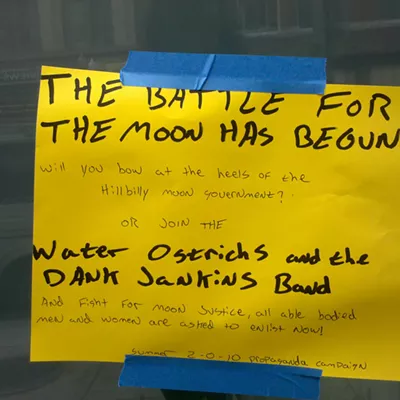 THE BATTLE FOR
THE MOON HAS BEGUN
will you bow at the heels of the
Hillbilly moon government?
OR JOIN THE
Water Ostrichs and the
DANK Jankins Band
And Fight For moon Justice, all able bodied
men and women are asked to enlist Now!
summer 2-0-10 propaganda campaign